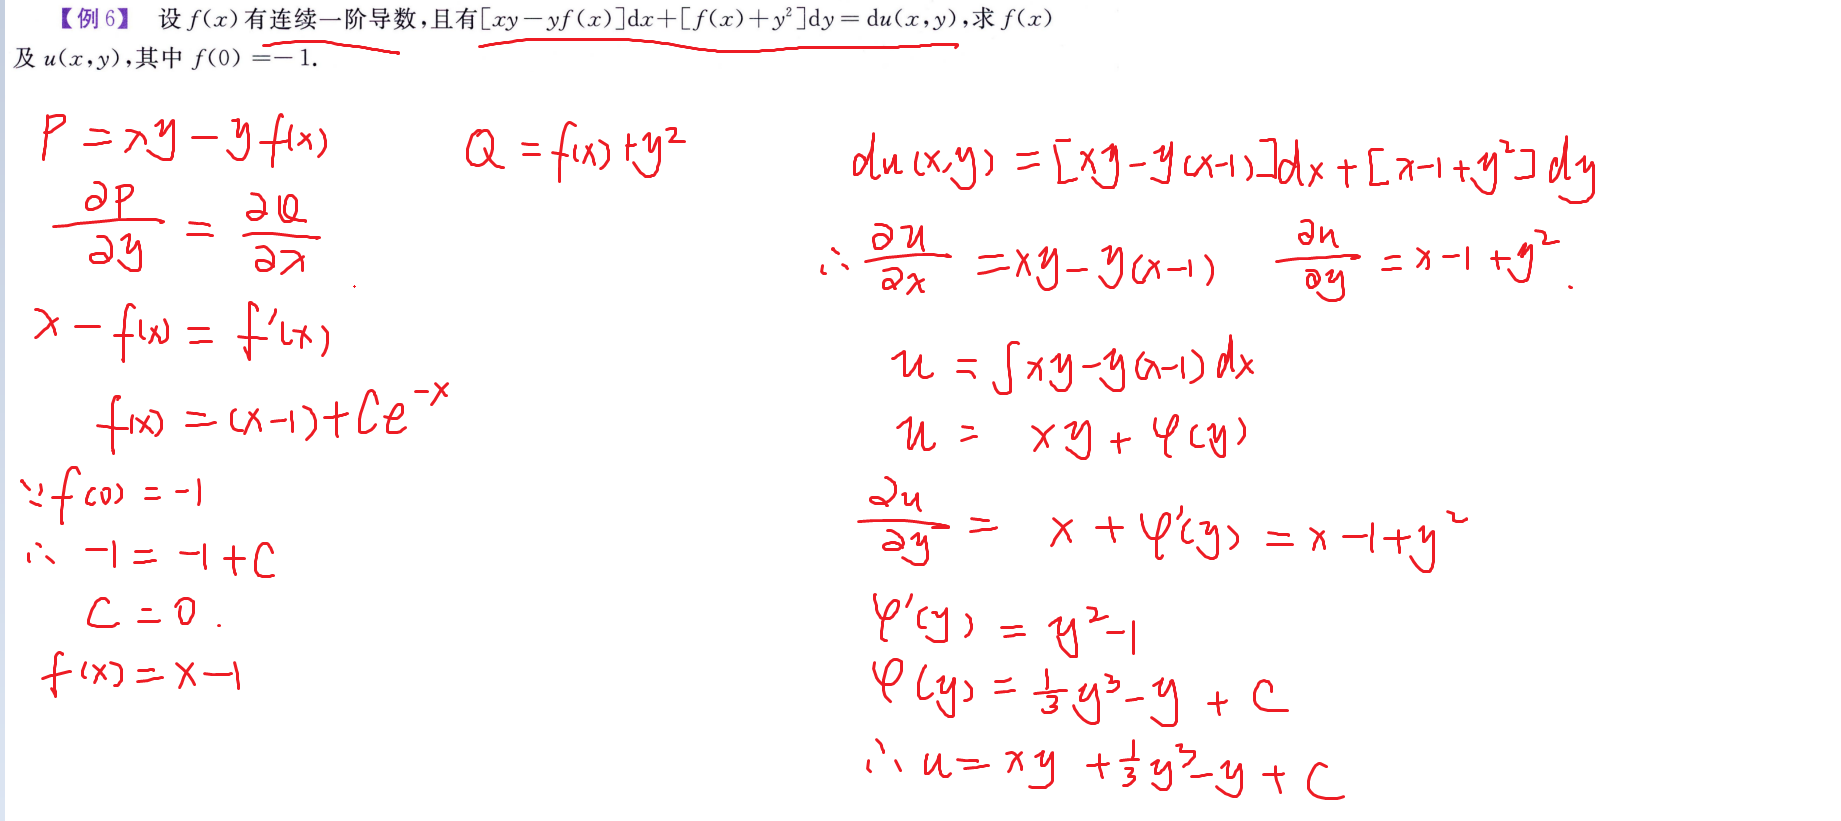 【例6】 设 f(x) 有连续一阶导数,且有[xy-yf(x)]dx+[f(x)+y²]dy=du(x,y),求 f(x)
及 u(x,y),其中 f(0)=-1.
P=xy-yf(x)
Q=f(x)+y²
∂P/∂y=∂Q/∂x
x-f(x)=f'(x)
f(x)=(x-1)+Ce⁻ˣ
∵f(0)=-1
∴ -1=-1+C
C=0.
f(x)=x-1
du(x,y)=[xy-y(x-1)]dx+[x-1+y²]dy
∴ ∂u/∂x=xy-y(x-1) ∂u/∂y=x-1+y².
u=∫xy-y(x-1)dx
u=xy+φ(y)
∂u/∂y=x+φ'(y)=x-1+y²
φ'(y)=y²-1
φ(y)=1/3y³-y+C
∴ u=xy+1/3y³-y+C